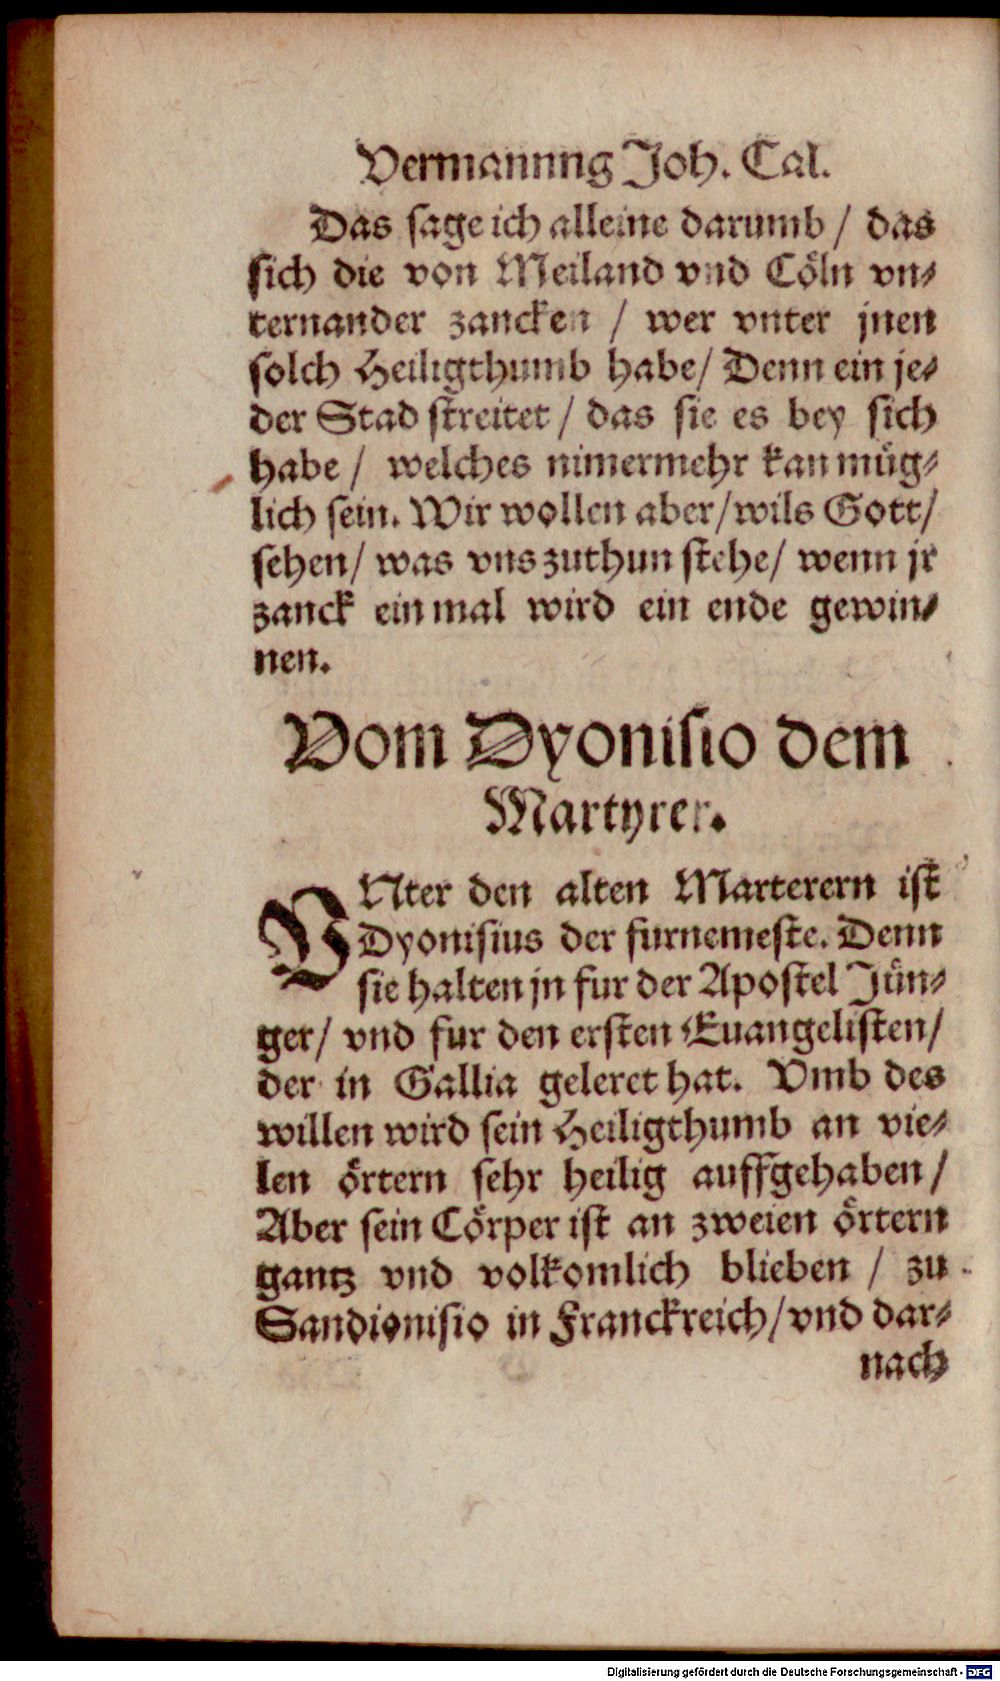 Vermannng Joh. Cal.
Das sage ich alleine darumb / das
sich die von Meiland vnd Cöln vn⸗
ternander zancken / wer vnter jnen
solch Heiligthumb habe / Denn ein je⸗
der Stad streitet / das sie es bey sich
habe / welches nimermehr kan müg⸗
lich sein. Wir wollen aber / wils Gott /
sehen / was vns zuthun stehe / wenn jr
zanck ein mal wird ein ende gewin⸗
nen.
Vom Dyonisio dem
Martyrer.
VNter den alten Marterern ist
Dyonisius der furnemeste. Denn
sie halten jn fur der Apostel Jün⸗
ger / vnd fur den ersten Euangelisten /
der in Gallia geleret hat. Vmb des
willen wird sein Heiligthumb an vie⸗
len örtern sehr heilig auffgehaben /
Aber sein Cörper ist an zweien örtern
gantz vnd volkomlich blieben / zu
Sandionisio in Franckreich / vnd dar⸗
nach
Digitalisierung gefördert durch die Deutsche Forschungsgemeinschaft - DFG